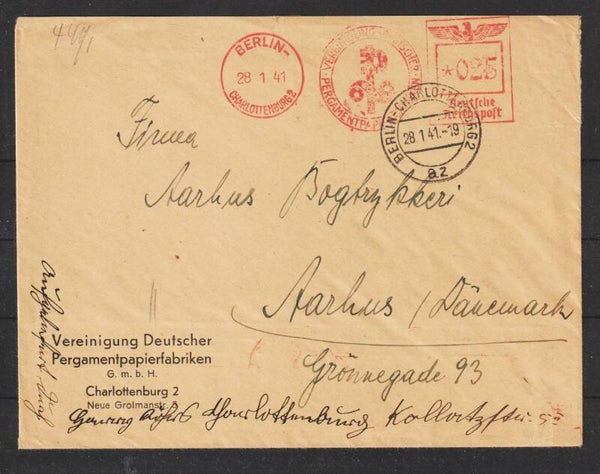 BERLIN-
28 1 41
CHARLOTTENBURG 2
VEREINIGUNG DEUTSCHER
PERGAMENTPAP
*025
Deutsche
Reichspost
BERLIN-CHARLOTTENBURG 2
28.1.41.-19
az
Firma
Aarhus Bogtrykkeri
Aarhus / Dänemark
Grönnegade 93
Vereinigung Deutscher
Pergamentpapierfabriken
G. m. b. H.
Charlottenburg 2
Neue Grolmanstr.
Charlottenburg